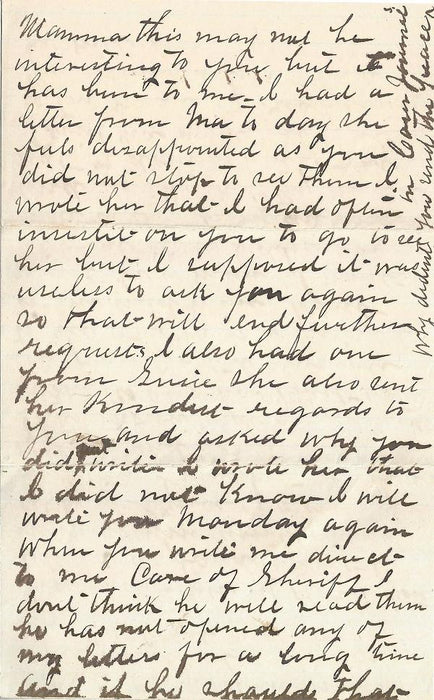 Mamma this may not be
interesting to you but it
has been to me. I had a
letter from Ma to day she
feels disappointed as you
did not stop to see them I
wrote her that I had often
insistit on you to go to see
her but I supposed it was
useless to ask you again
so that will end further
requests I also had one
from Susie she also sent
her Kindest regards to
you and asked why you
did not write I wrote her that
I did not Know I will
write you Monday again
when you write me direct
to me Care of Sheriff I
dont think he will read them
he has not opened any of
my letters for a long time
and if he should that
why didnt you send the
in Care